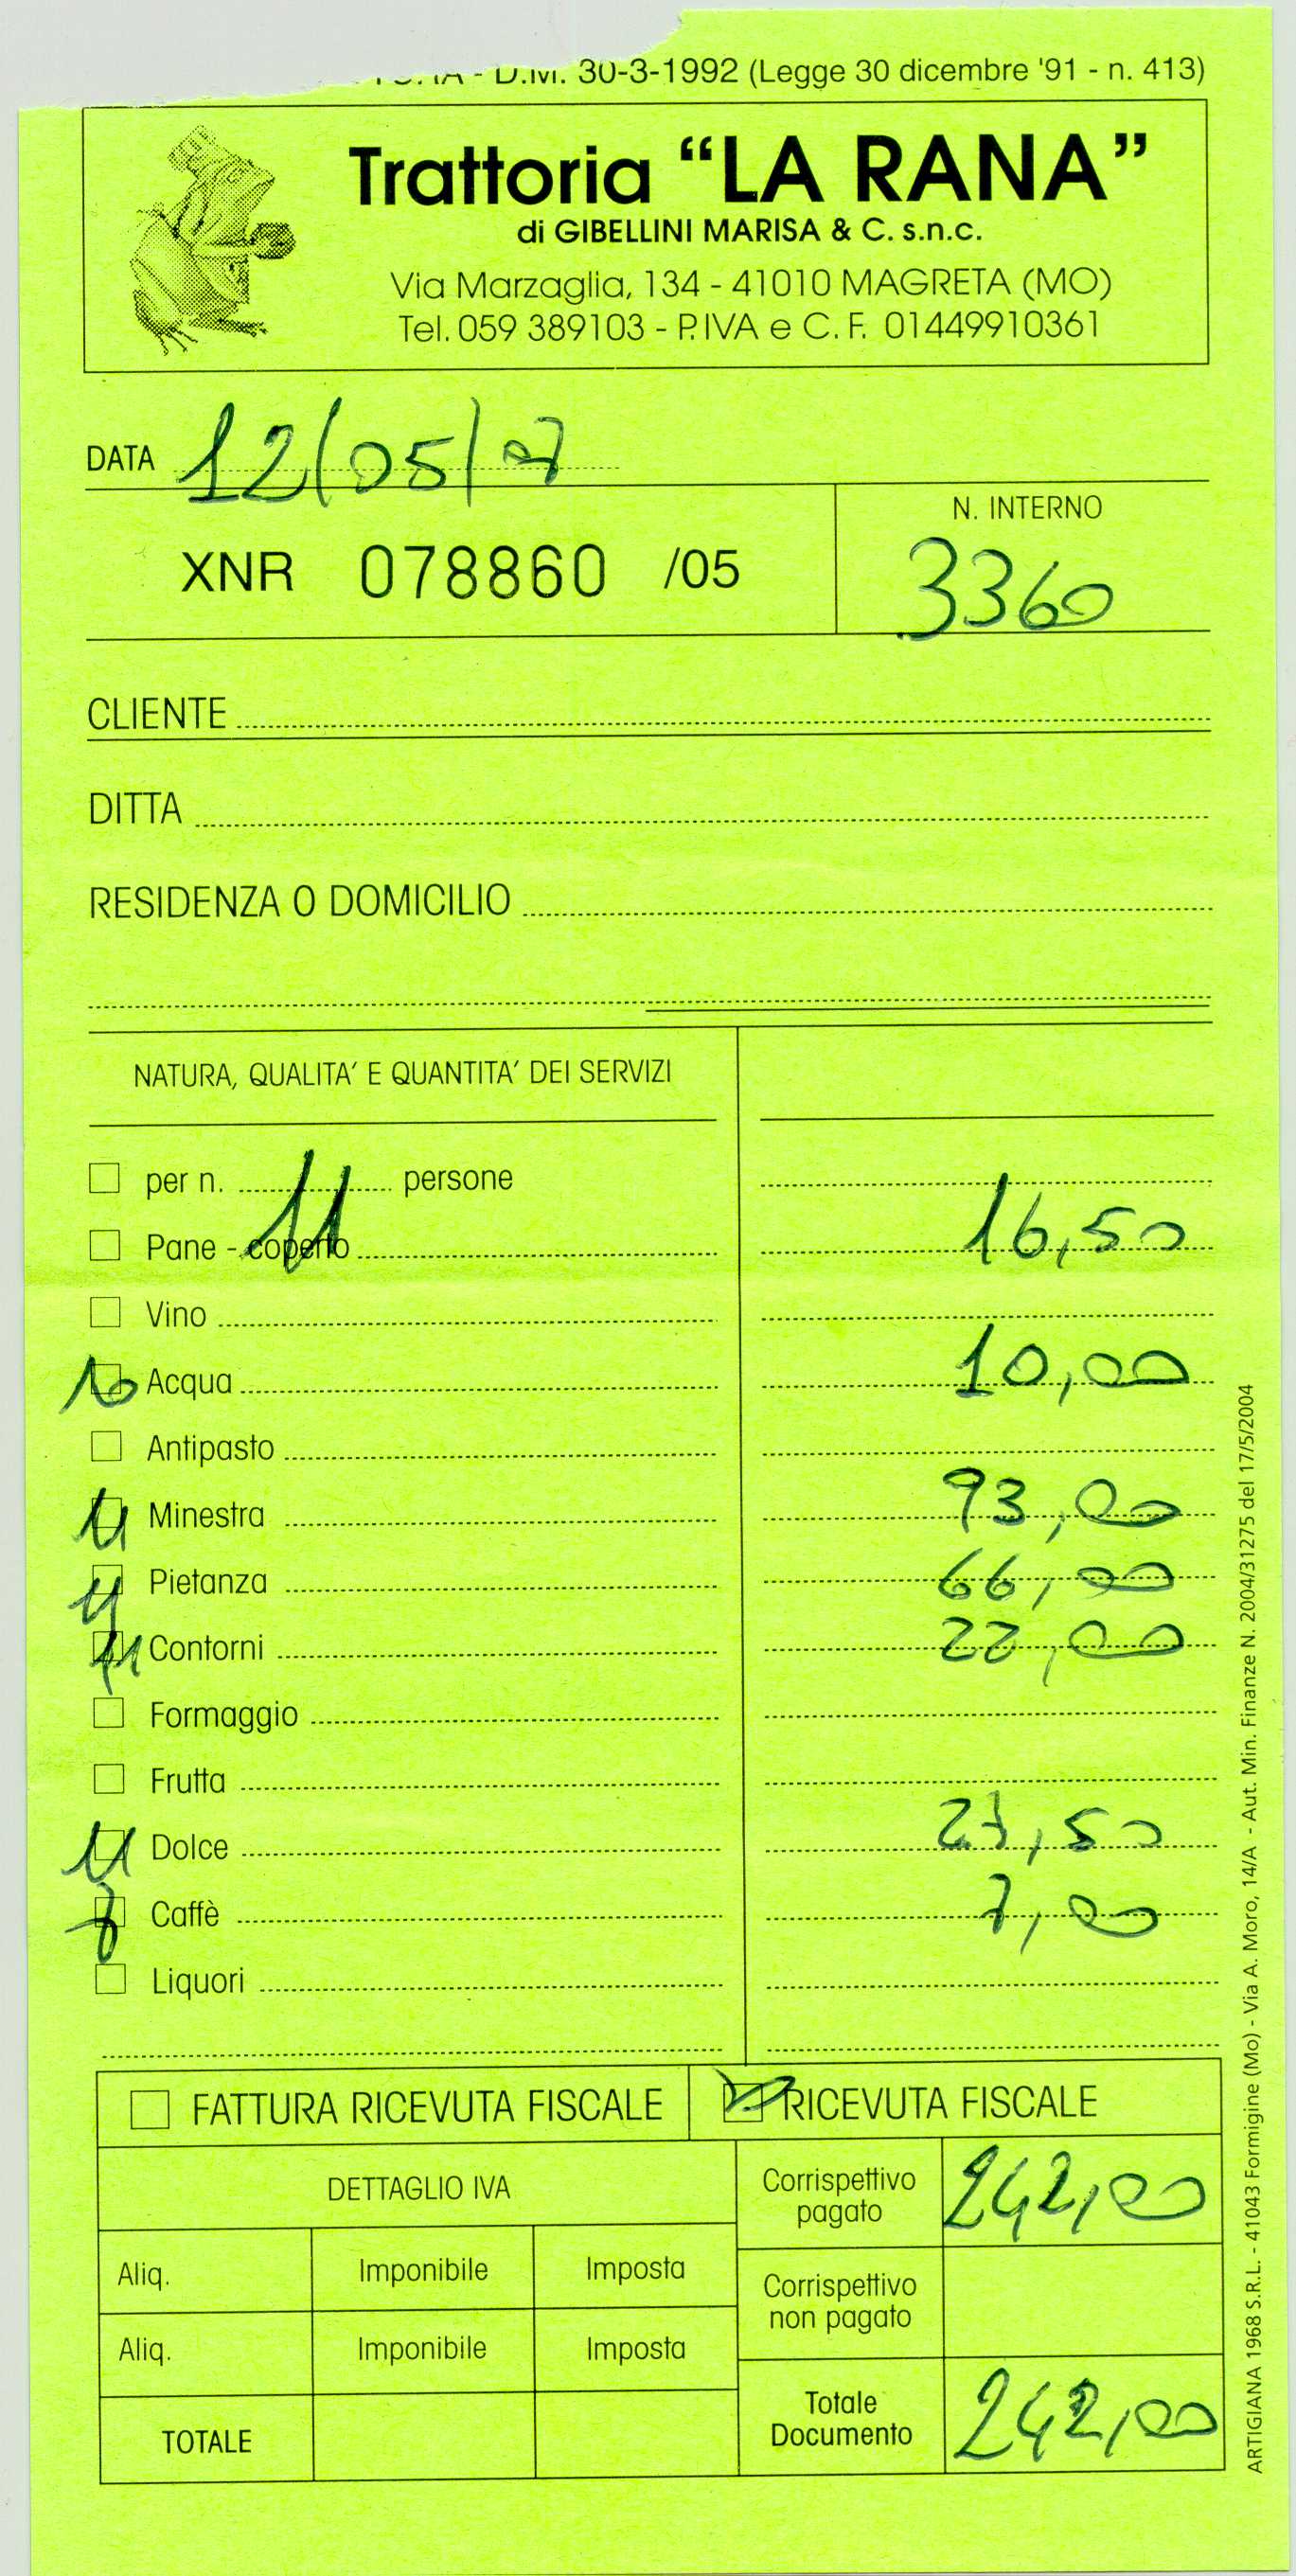 D.M. 30-3-1992 (Legge 30 dicembre '91 - n. 413)
Trattoria “LA RANA”
di GIBELLINI MARISA & C. s.n.c.
Via Marzaglia, 134 - 41010 MAGRETA (MO)
Tel. 059 389103 - P.IVA e C. F. 01449910361
DATA 12/05/07
N. INTERNO
XNR 078860 /05 3360
CLIENTE
DITTA
RESIDENZA O DOMICILIO
NATURA, QUALITA' E QUANTITA' DEI SERVIZI
per n. 11 persone
Pane - coperto 16,50
Vino
10 Acqua 10,00
Antipasto
11 Minestra 93,00
11 Pietanza 66,00
11 Contorni 22,00
Formaggio
Frutta
11 Dolce 27,50
7 Caffè 7,00
Liquori
FATTURA RICEVUTA FISCALE RICEVUTA FISCALE
DETTAGLIO IVA
Corrispettivo
pagato 242,00
Aliq. Imponibile Imposta
Corrispettivo
non pagato
Aliq. Imponibile Imposta
TOTALE
Totale
Documento 242,00
ARTIGIANA 1968 S.R.L. - 41043 Formigine (Mo) - Via A. Moro, 14/A - Aut. Min. Finanze N. 2004/31275 del 17/5/2004